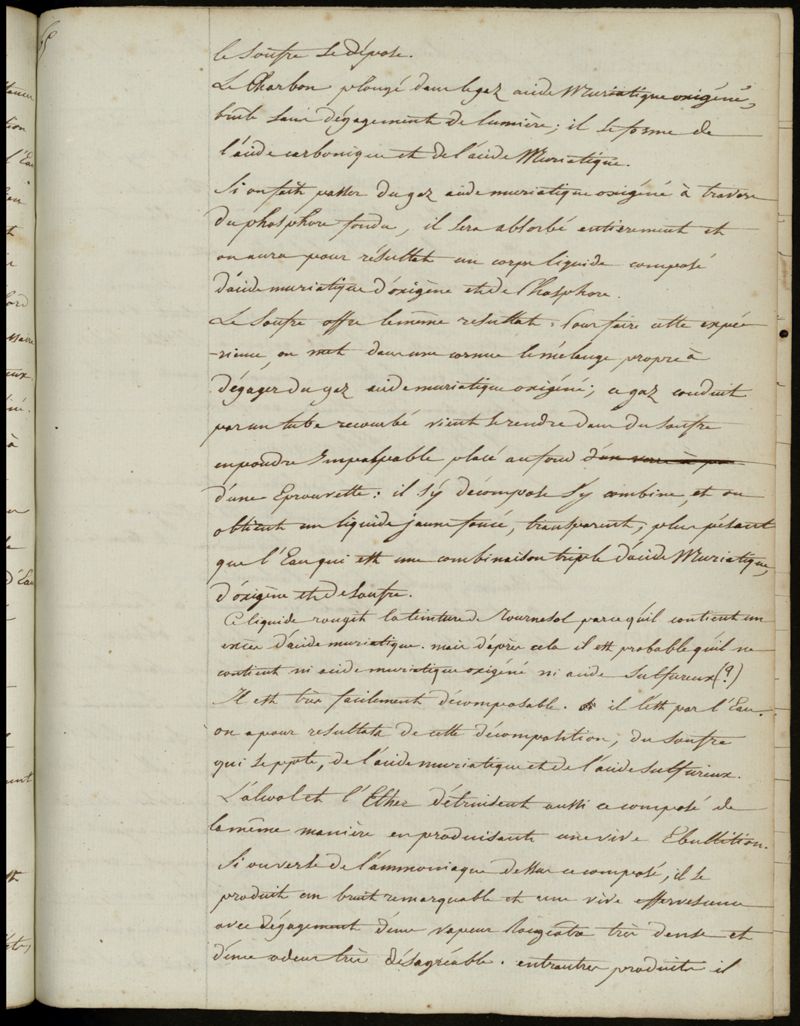 le soufre se dépose.
Le Charbon plongé dans le gaz acide Muriatique oxigéné,
brule sans dégagement de lumière; il se forme de
l'acide carbonique et de l'acide Muriatique.
Si on fait passer du gaz acide muriatique oxigéné à travers
du phosphore fondu, il sera absorbé entierement et
on aura pour résultat un corps liquide composé
d'acide muriatique d'oxigène et de Phosphore.
Le Soufre offre le même resultat. Pour faire cette expé-
-rience, on met dans une cornue le mélange propre à
dégager du gaz acide muriatique oxigéné; ce gaz conduit
par un tube recourbé vient se rendre dans du soufre
en poudre Impalpable placé au fond d'un vase à
d'une Eprouvette: il s'y décompose s'y combine, et on
obtient un liquide jaune foncé, transparent, plus pésant
que l'Eau qui est une combinaison triple d'acide Muriatique,
d'oxigène et de soufre.
Ce liquide rougit la teinture de Tournesol parce qu'il contient un
excès d'acide muriatique. mais d'après cela il est probable qu'il ne
contient ni acide muriatique oxigéné ni acide sulfureux (?)
Il est très facilement décomposable. il l'est par l'Eau.
on a pour resultats de cette décomposition, du soufre
qui se ppte, de l'acide muriatique et de l'acide sulfureux.
L'alcool et l'Ether détruisent aussi ce composé de
la même manière en produisant une vive Ebullition.
Si on verse de l'ammoniaque dessus ce composé, il se
produit un bruit remarquable et une vive effervescence
avec dégagement d'une vapeur rougeatre très dense et
d'une odeur très désagréable. entr'autres produits il